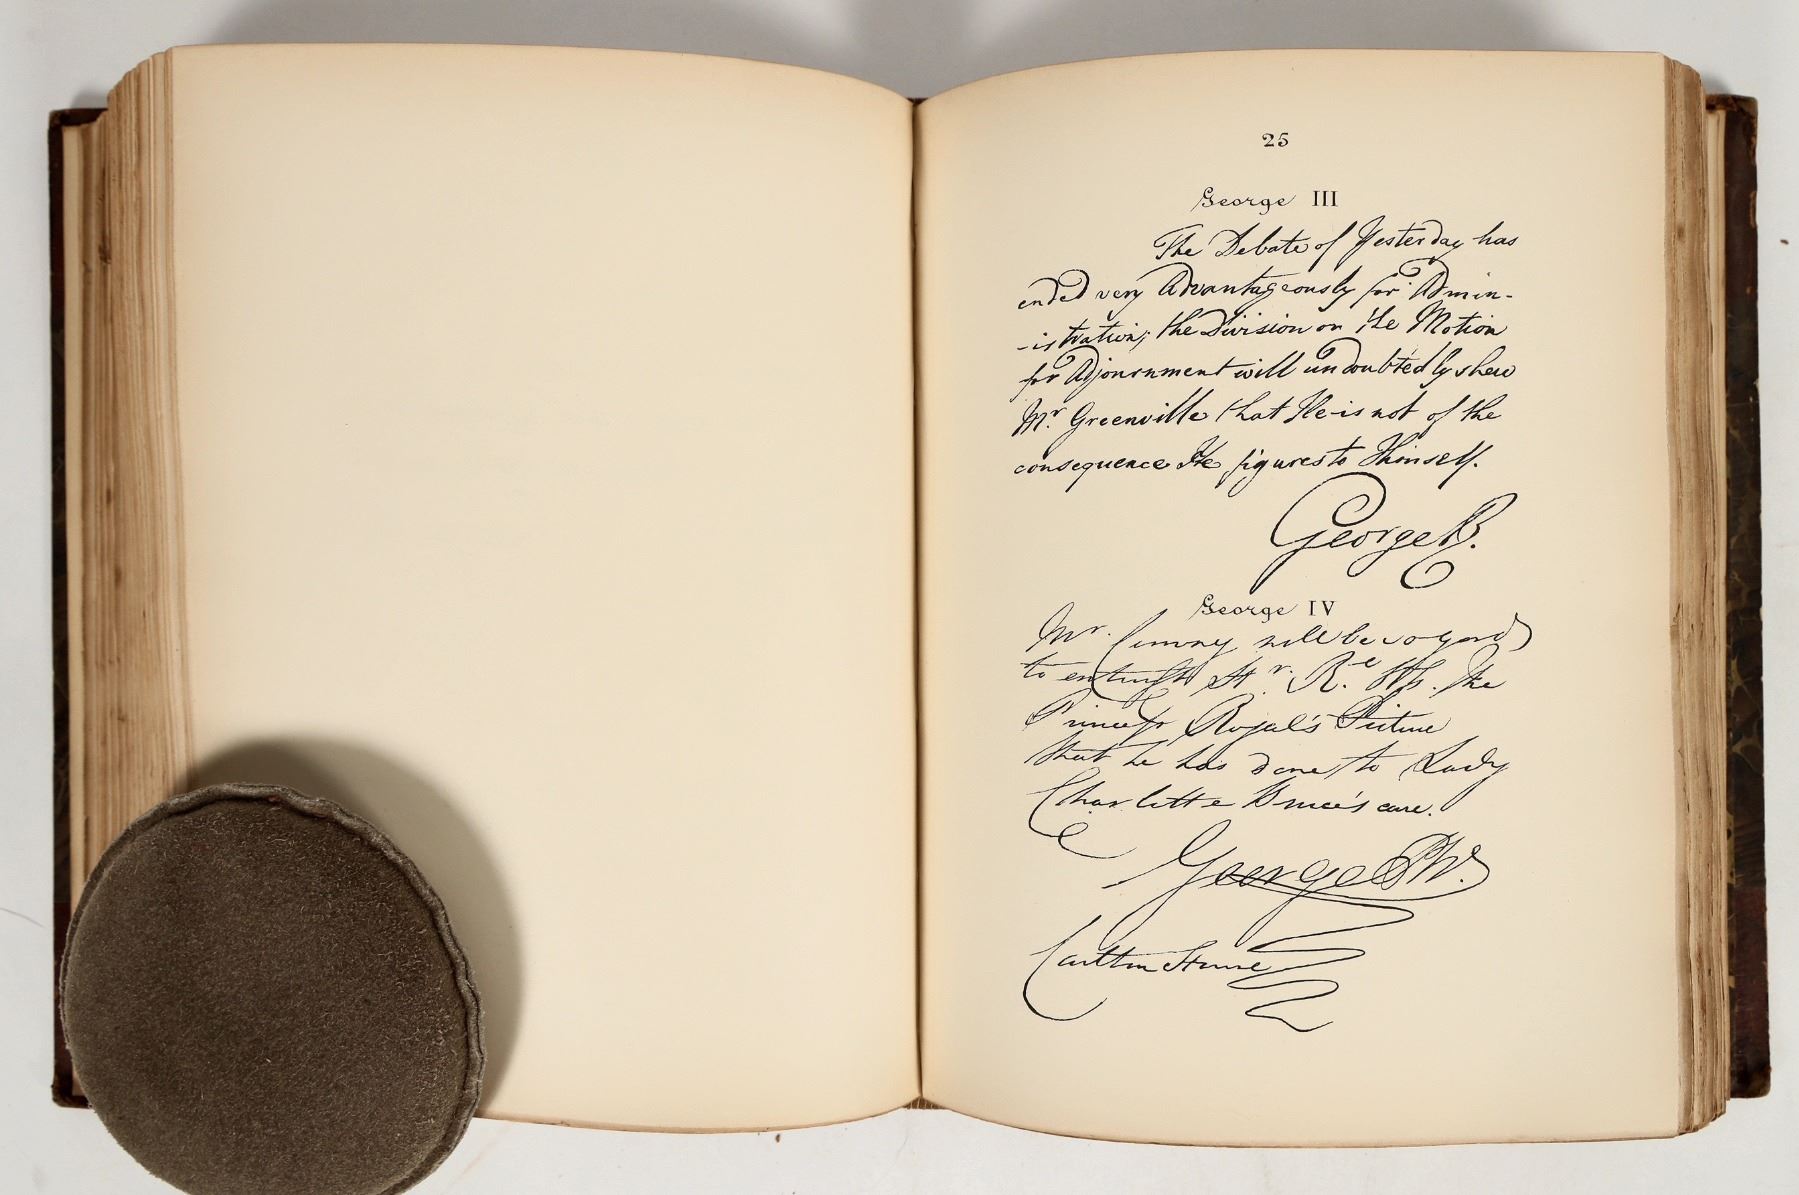 25
George III
The Debate of Yesterday has
ended very Advantageously for Admin-
-istration; the Division on the Motion
for Adjournment will undoubtedly shew
Mr. Greenville that He is not of the
consequence He figures to Himself.
George R.
George IV
Mr. will be so good
to entrust Hr. Rl. Hs. the
Princess Royal's Picture
that he has done to Lady
Charlotte Bruce's care.
George P
Carlton House